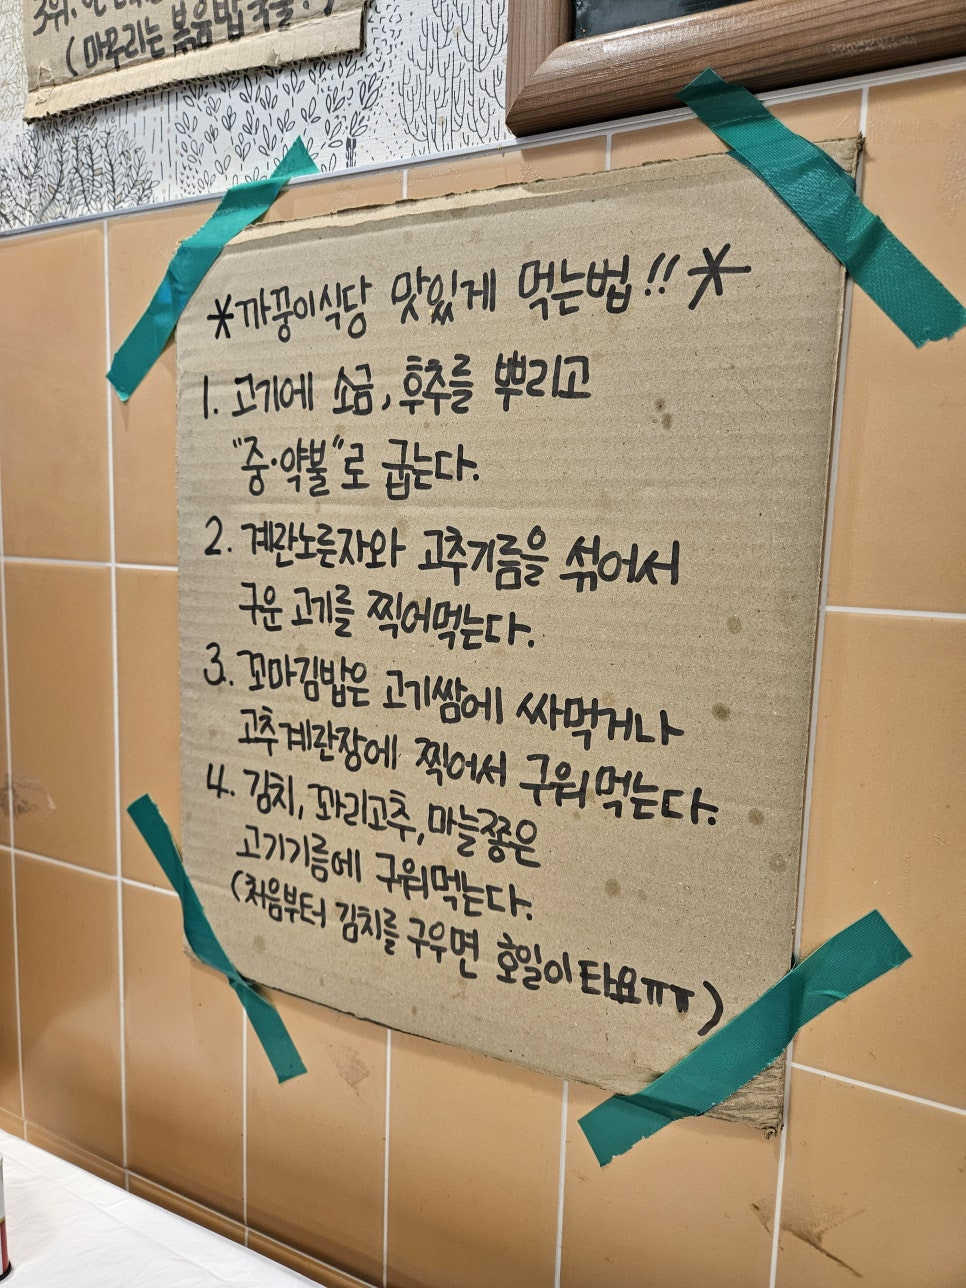 3위.
(마무리는 볶음밥
*까꿍이식당 맛있게 먹는법!!*
1. 고기에 소금, 후추를 뿌리고
"중·약불"로 굽는다.
2. 계란노른자와 고추기름을 섞어서
구운 고기를 찍어먹는다.
3. 꼬마김밥은 고기쌈에 싸먹거나
고추계란장에 찍어서 구워먹는다.
4. 김치, 꽈리고추, 마늘쫑은
고기기름에 구워먹는다.
(처음부터 김치를 구우면 호일이 타요ㅠㅠ)